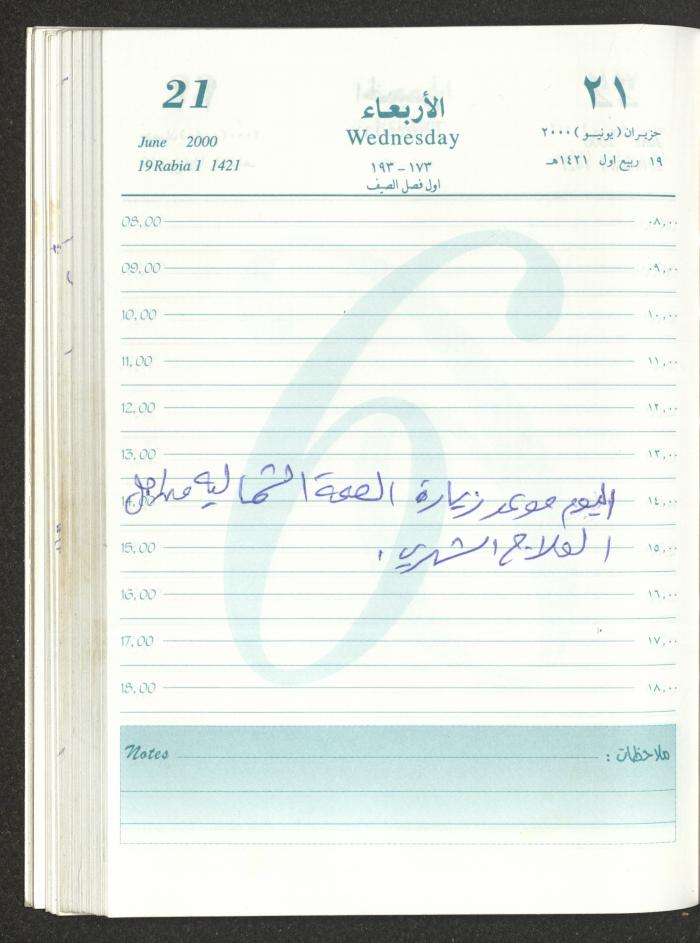 21
الأربعاء
٢١
Wednesday
June 2000
حزيران (يونيو) ٢٠٠٠
19 Rabia 1 1421
١٩ ربيع اول ١٤٢١هـ
١٧٣ - ١٩٣
اول فصل الصيف
6
08,00 ٠٨,٠٠
09,00 ٠٩,٠٠
10,00 ١٠,٠٠
11,00 ١١,٠٠
12,00 ١٢,٠٠
13,00 ١٣,٠٠
اليوم موعد زيارة الصحة الشمالية من اجل
14,00 ١٤,٠٠
العلاج الشهري.
15,00 ١٥,٠٠
16,00 ١٦,٠٠
17,00 ١٧,٠٠
18,00 ١٨,٠٠
Notes ملاحظات :